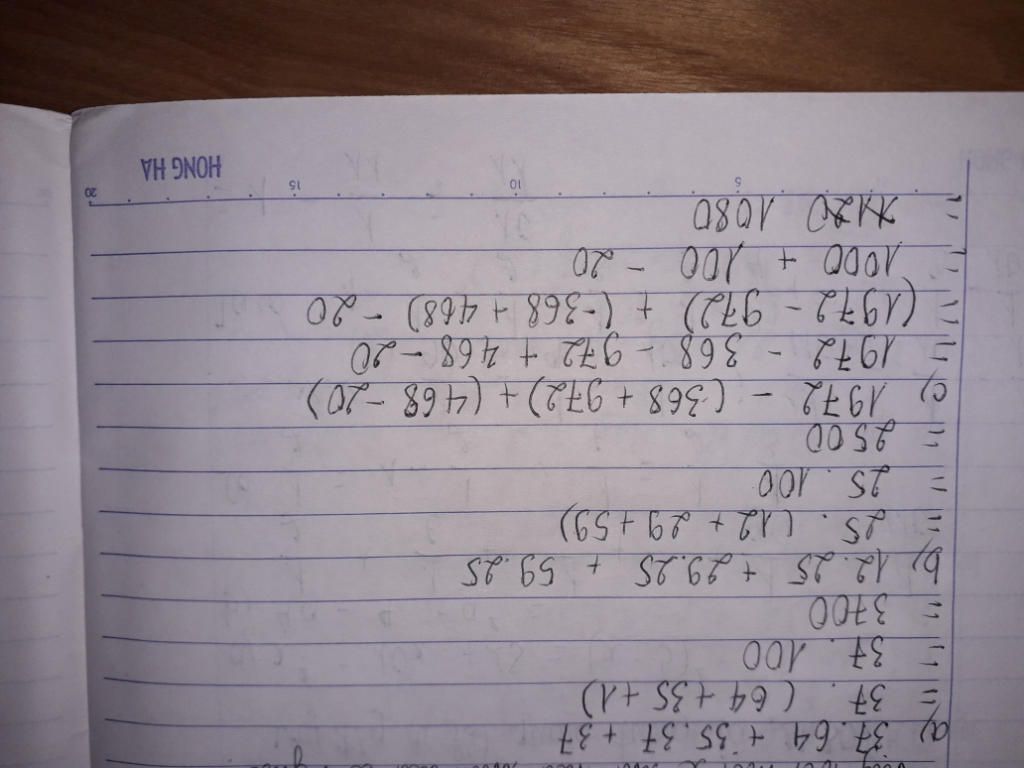 a) 37.64 + 35.37 + 37
= 37. (64 + 35 + 1)
= 37. 100
= 3700
b) 12.25 + 29.25 + 59.25
= 25. (12 + 29 + 59)
= 25. 100
= 2500
c) 1972 - (368 + 972) + (468 - 20)
= 1972 - 368 - 972 + 468 - 20
= (1972 - 972) + (-368 + 468) - 20
= 1000 + 100 - 20
= 1120 1080
5 10 15 20
HONG HA